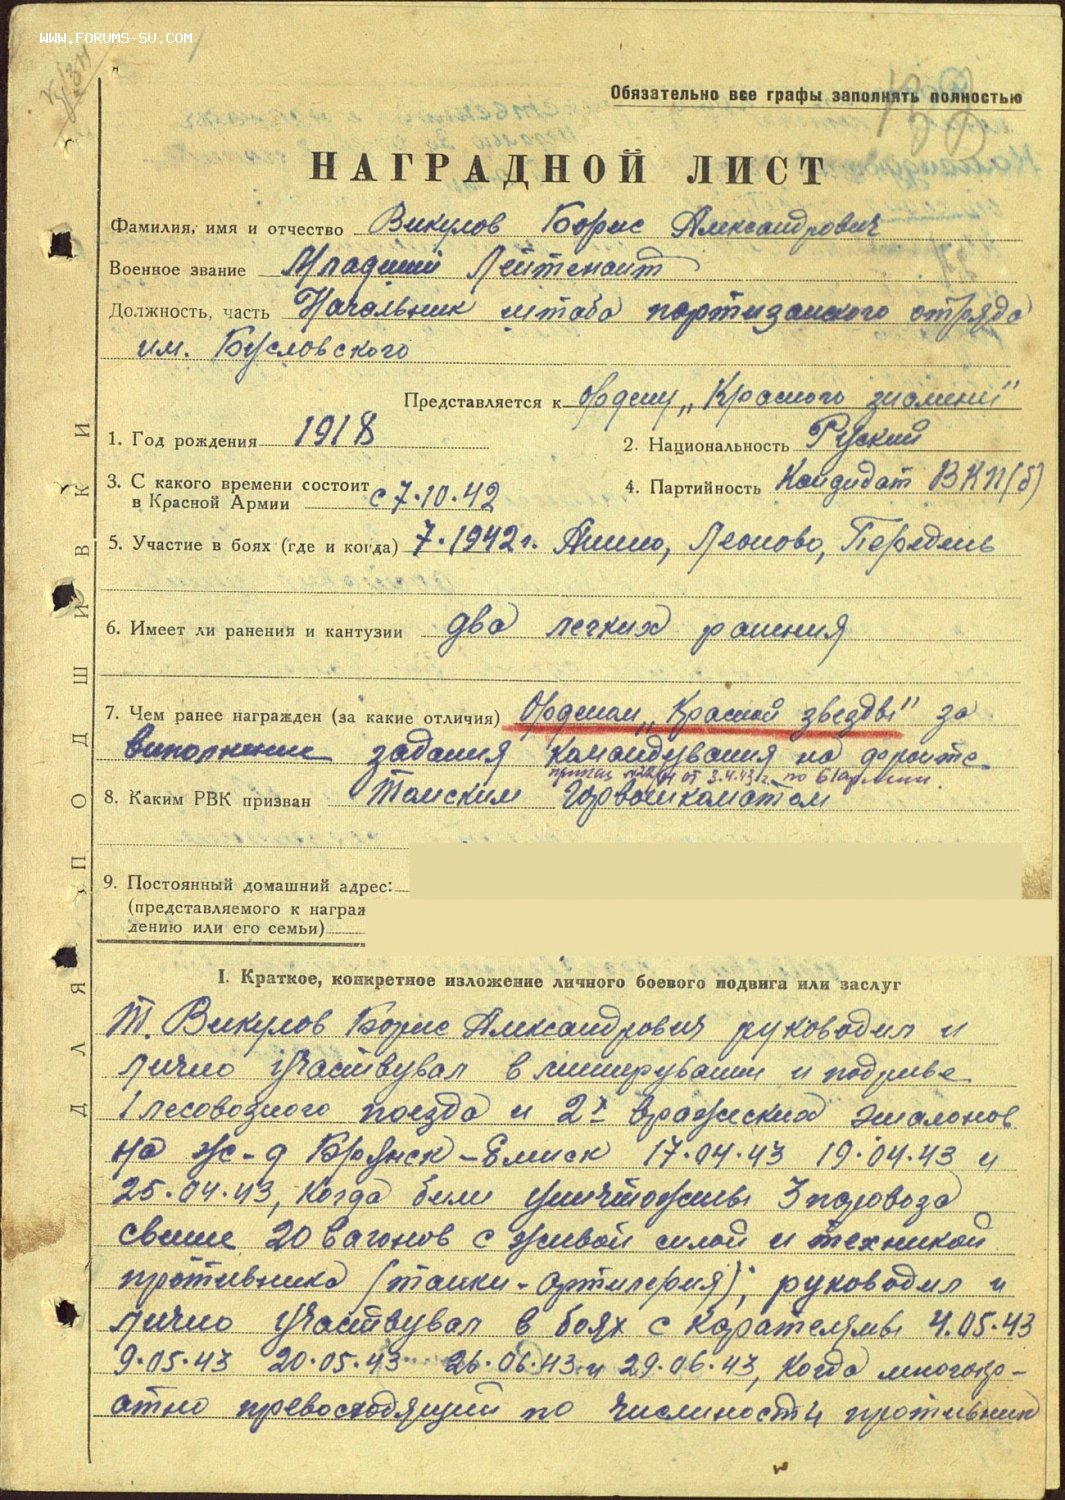 WWW.FORUMS-SU.COM
Обязательно все графы заполнять полностью
НАГРАДНОЙ ЛИСТ
Фамилия, имя и отчество Викулов Борис Александрович
Военное звание Младший Лейтенант
Должность, часть Начальник штаба партизанского отряда
им.
Представляется к ордену „Красного знамени"
1. Год рождения 1918
2. Национальность Руский
3. С какого времени состоит
в Красной Армии с 7.10.42
4. Партийность Кандидат ВКП(б)
5. Участие в боях (где и когда) 7.1942 г. Анино, Леоново, Передель
6. Имеет ли ранения и кантузии два легких ранения
7. Чем ранее награжден (за какие отличия) Орденом „Красной звезды" за
выполнение задания командувания на фронте
от 3.4.43 г. по 61 армии.
8. Каким РВК призван Томским Горвоинкоматом
9. Постоянный домашний адрес:
(представляемого к награж
дению или его семьи)
ДЛЯ ПОДШИВКИ
I. Краткое, конкретное изложение личного боевого подвига или заслуг
Т. Викулов Борис Александрович руководил и
лично участвувал в минирувании и подриве
1 лесовозного поезда и 2х вражеских эшалонов
на ж-д Брянск – 17.04.43 19.04.43 и
25.04.43, когда били уничтожены 3 паровоза
свыше 20 вагонов с живой силой и техникой
противника (танки-артилерия); руководил и
лично участвувал в боях с карателямы 4.05.43
9.05.43 20.05.43 26.06.43 и 29.06.43, когда многокр-
атно превосходящий по числиности противник